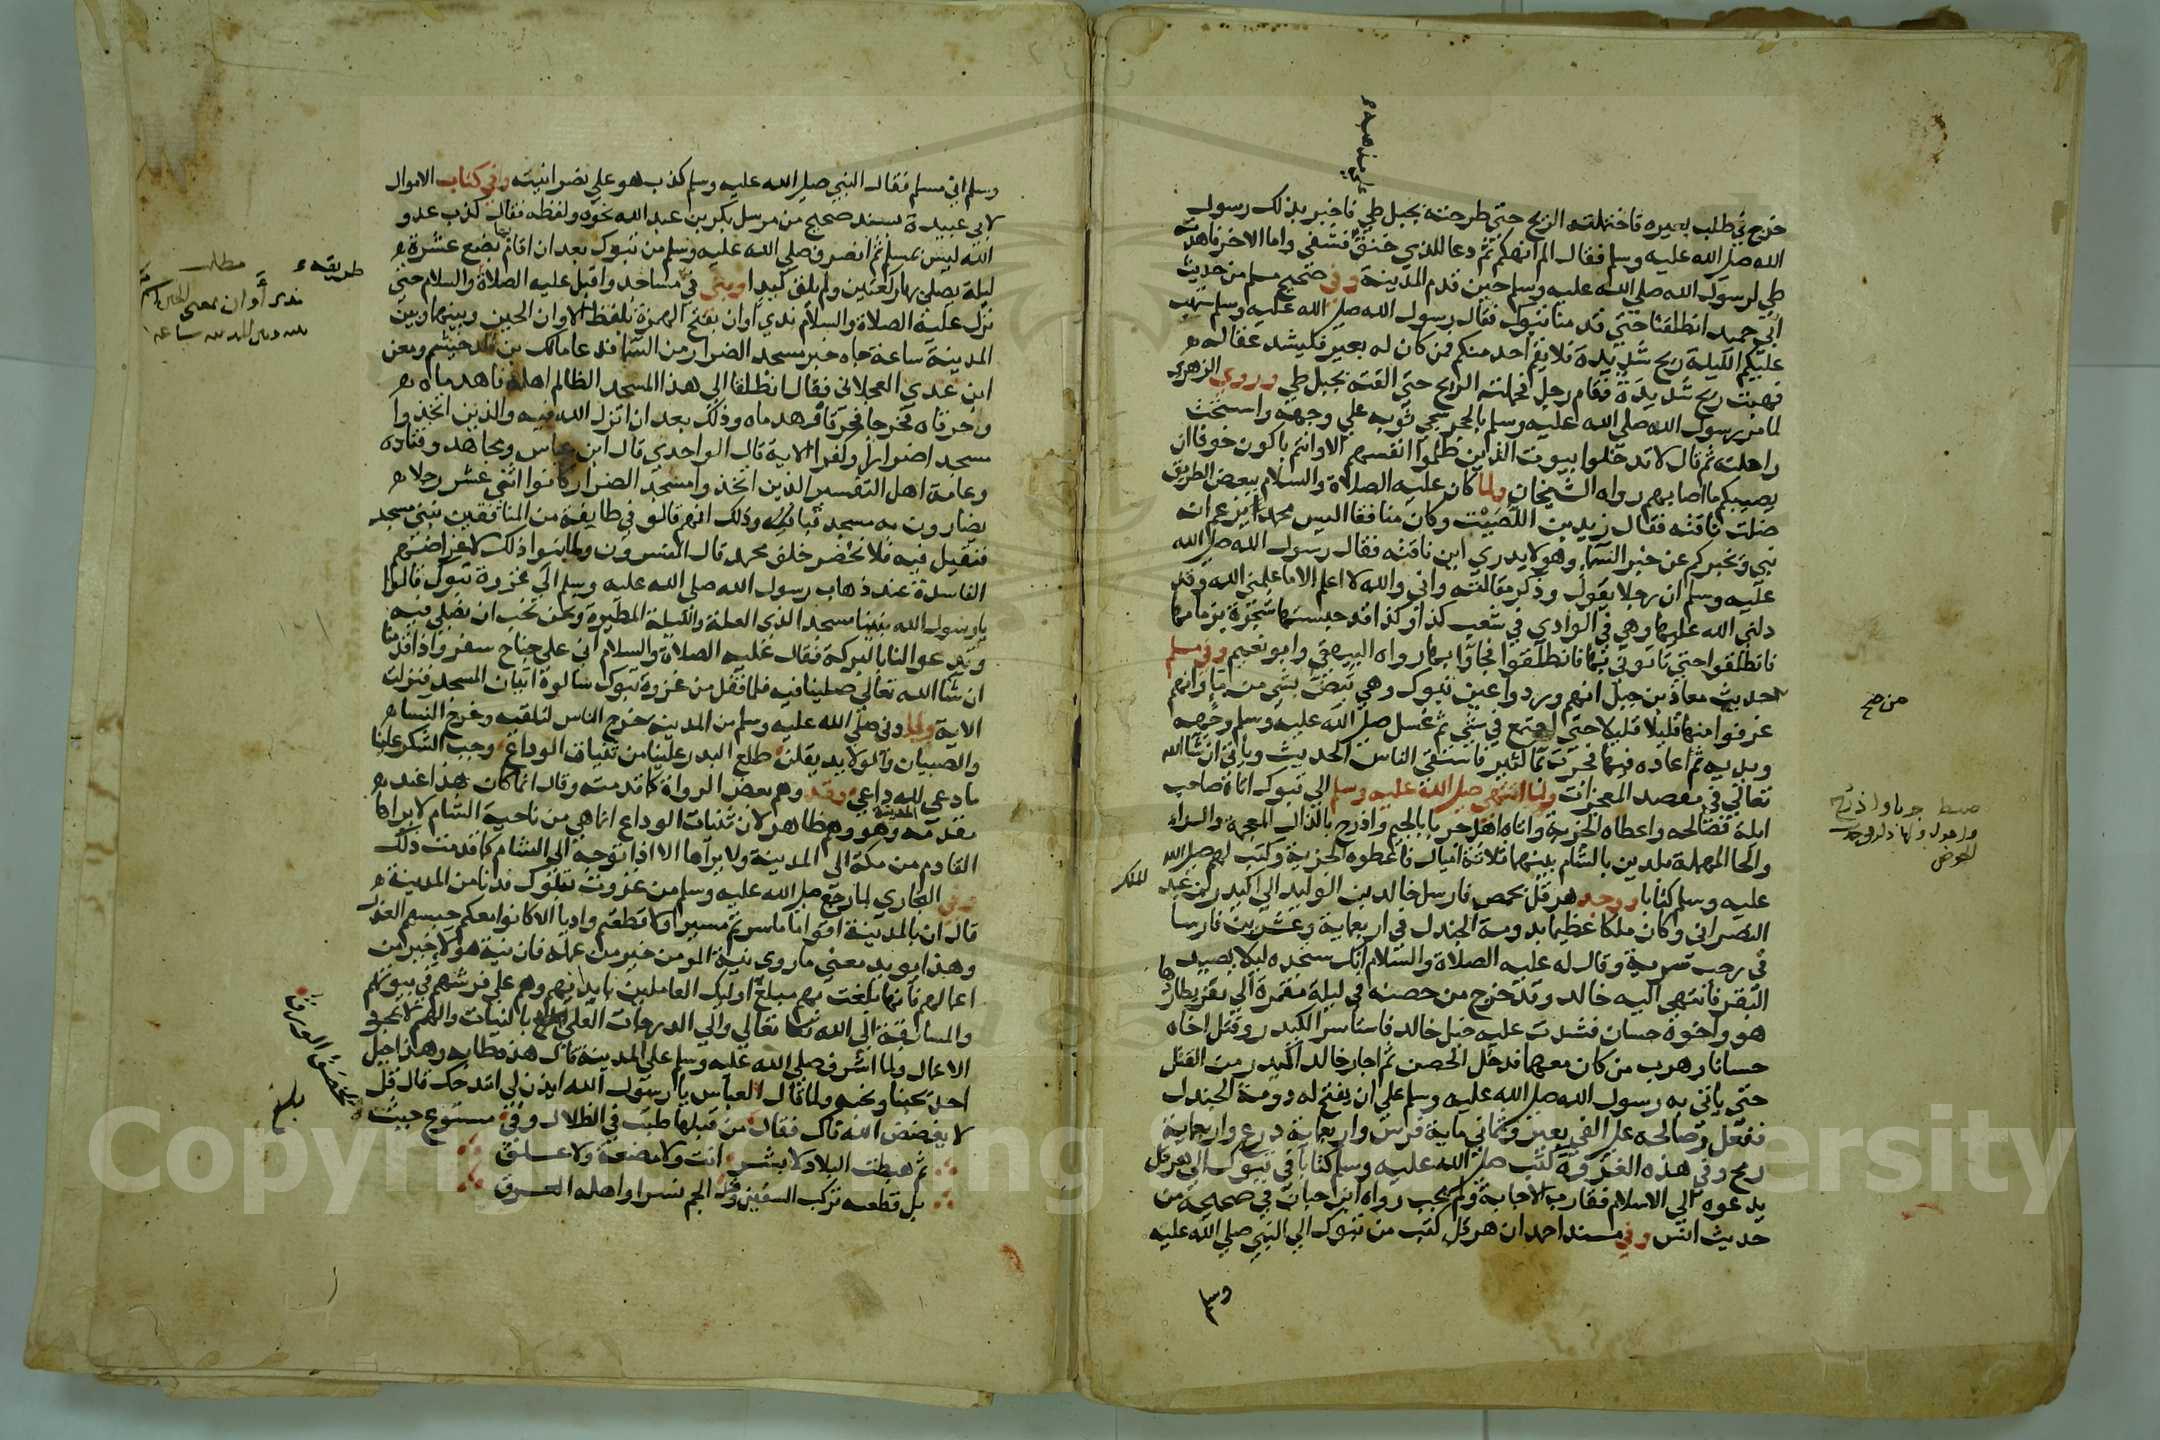 علي مذهبه
خرج في طلب بعيره فاحتملته الريح حتي طرحته بجبل طي فاخبر بذلك رسول
الله صلى الله عليه وسلم فقال الم انهكم ثم دعا للذي خنق فشفي واما الاخر فاهدته
طي لرسول الله صلي الله عليه وسلم حين قدم المدينة وفي صحيح مسلم من حديث
ابي حميد انطلقنا حتي قدمنا تبوك فقال رسول الله صلى الله عليه وسلم ستهب
عليكم الليلة ريح شديدة فلا يقم احد منكم فمن كان له بعير فليشد عقاله
فهبت ريح شديدة فقام رجل فحملته الريح حتي القته بجبل طي وروي الزهري
لما مر رسول الله صلي الله عليه وسلم بالحجر سجي ثوبه علي وجهه واستحث
راحلته ثم قال لا تدخلوا بيوت الذين ظلموا انفسهم الا وانتم باكون خوفا ان
يصيبكم ما اصابهم رواه الشيخان ولما كان عليه الصلاة والسلام ببعض الطريق
ضلت ناقته فقال زيد بن اللصيت وكان منافقا اليس محمد يزعم انه
نبي ويخبركم عن خبر السما وهو لا يدري اين ناقته فقال رسول الله صلى الله
عليه وسلم ان رجلا يقول وذكر مقالته واني والله لا اعلم الا ما علمني الله وقد
دلني الله عليها وهي في الوادي في شعب كذا وكذا قد حبستها شجرة بزمامها
فانطلقوا حتي تاتوني بها فانطلقوا فجاوا بها رواه البيهقي وابو نعيم وفي مسلم
من حديث معاذ بن جبل انهم وردوا عين تبوك وهي تبض بشي من ما وانهم
غرفوا منها قليلا قليلا حتي اجتمع في شي ثم غسل صلى الله عليه وسلم وجهه
ويديه ثم اعاده فيها فجرت بما كثير فاستقي الناس الحديث وياتي ان شا الله
تعالي في مقصد المعجزات ولما انتهي صلى الله عليه وسلم الي تبوك اتاه صاحب
ايلة فصالحه واعطاه الجزية واتاه اهل جربا بالجيم واذرح بالذال المعجمة والراء
والحا المهملة بلدين بالشام بينهما ثلاثة اميال فاعطوه الجزية وكتب لهم صلى الله
عليه وسلم كتابا ووجد هرقل بحمص فارسل خالد بن الوليد الي اكيدر بن عبد
الملك
النصراني وكان ملكا عظيما بدومة الجندل في اربعماية وعشرين فارسا
في رجب سرية وقال له عليه الصلاة والسلام انك ستجده ليلا يصيد
البقر فانتهي اليه خالد وقد خرج من حصنه في ليلة مقمرة الي بقر يطاردها
هو واخوه حسان فشدت عليه خيل خالد فاستاسر اكيدر وقتل اخاه
حسانا وهرب من كان معهما فدخل الحصن ثم اجار خالد اكيدر من القتل
حتي ياتي به رسول الله صلى الله عليه وسلم علي ان يفتح له دومة الجندل
ففعل وصالحه على الفي بعير وثماني ماية فرس واربعماية درع واربعماية
رمح وفي هذه الغزوة كتب صلى الله عليه وسلم كتابا في تبوك الي هرقل
يدعوه الي الاسلام فقارب الاجابة ولم يجب رواه ابن حبان في صحيحه من
حديث انس وفي مسند احمد ان هرقل كتب من تبوك الي النبي صلي الله عليه
وسلم
ضبط جربا واذرح
وسلم اني مسلم فقال النبي صلى الله عليه وسلم كذب هو علي نصرانيته وفي كتاب الاموال
لابي عبيدة بسند صحيح من مرسل بكر بن عبد الله نحوه ولفظه فقال كذب عدو
الله ليس بمسلم ثم انصرف صلي الله عليه وسلم من تبوك بعد ان اقام بضع عشرة
ليلة يصلي بها ركعتين ولم يلق كيدا وبني في طريقه مساجد واقبل عليه الصلاة والسلام حتي
نزل عليه الصلاة والسلام بذي اوان بفتح الهمزة بلفظ الاوان الحين وبينها وبين
المدينة ساعة جاه خبر مسجد الضرار من السما فدعا مالك بن الدخيشم ومعن
ابن عدي العجلاني فقال انطلقا الي هذا المسجد الظالم اهله فاهدماه
واحرقاه فخرجا فحرقاه وهدماه وذلك بعد ان انزل الله فيه والذين اتخذوا
مسجدا ضرارا وكفرا الاية قال الواحدي قال ابن عباس ومجاهد وقتاده
وعامة اهل التفسير الذين اتخذوا مسجد الضرار كانوا اثني عشر رجلا
يضارون به مسجد قبا وذلك انهم قالوا في طايفة من المنافقين نبني مسجد
فنقيل فيه فلا نحضر خلف محمد قال المفسرون ولما بنوا ذلك لاغراضهم
الفاسدة عند ذهاب رسول الله صلى الله عليه وسلم الي غزوة تبوك قالوا
يا رسول الله بنينا مسجدا لذي العلة والليلة المطيرة ونحن نحب ان تصلي فيه
وتدعو لنا بالبركة فقال عليه الصلاة والسلام اني علي جناح سفر واذا قدمنا
ان شا الله تعالي صلينا فيه فلما قفل من غزوة تبوك سالوه اتيان المسجد فنزلت
الاية ولما دني صلى الله عليه وسلم من المدينة خرج الناس لتلقيه وخرج النسا
والصبيان والولايد يقلن طلع البدر علينا من ثنيات الوداع وجب الشكر علينا
ما دعى لله داعي وقد وهم بعض الرواة كما قدمته وقال انما كان هذا عند
مقدمه المدينة وهو وهم ظاهر لان ثنيات الوداع انما هي من ناحية الشام لا يراها
القادم من مكة الي المدينة ولا يراها الا اذا توجه الي الشام كما قدمت ذلك
وفي البخاري لما رجع صلى الله عليه وسلم من غزوت تبوك فدنا من المدينة
قال ان بالمدينة اقواما ما سرتم مسيرا ولا قطعتم واديا الا كانوا معكم حبسهم العذر
وهذا يويد معني ما روي نية المومن خير من عمله فان نية هولا خير من
اعمالهم فانها بلغت بهم مبلغ اوليك العاملين بابدانهم وهم علي فرشهم في بيوتهم
والمسابقة الي الله تعالي والي الدرجات العلي بالنيات والهمم لا بمجرد
الاعمال ولما اشرف صلي الله عليه وسلم على المدينة قال هذه طابه وهذا جبل
احد يحبنا ونحبه ولما قال العباس يا رسول الله ايذن لي امتدحك قال قل
لا يفضض الله فاك فقال من قبلها طبت في الظلال وفي مستودع حيث
يخصف الورق
ثم هبطت البلاد لا بشر انت ولا مضغة ولا علق
بل نطفة تركب السفين وقد الجم نسرا واهله الغرق
مطلب
بلغ